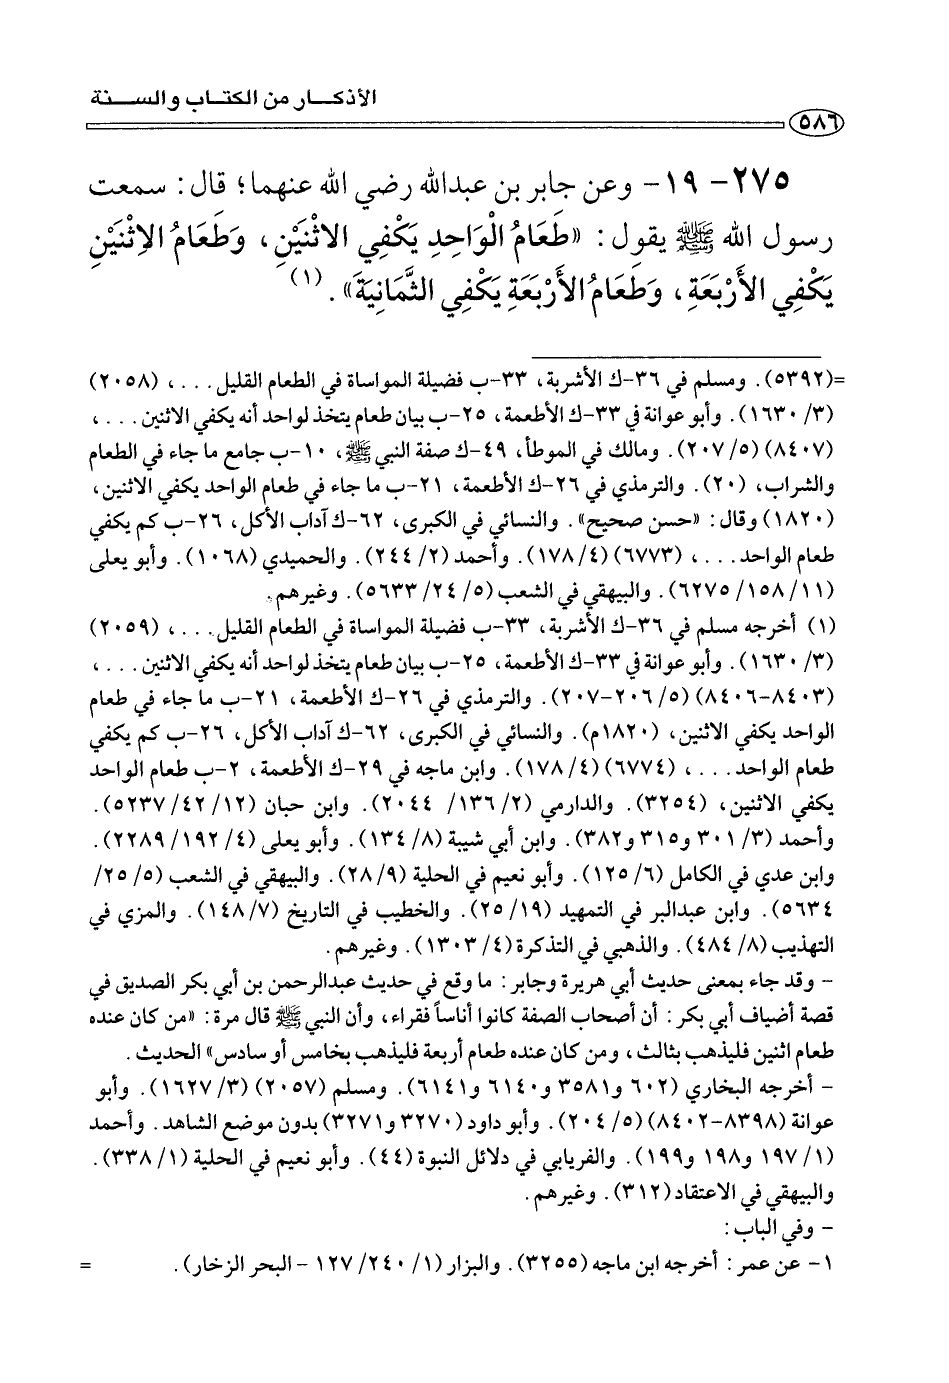 الأذكــار من الكتـاب والســنة
٥٨٦
٢٧٥- ١٩- وعن جابر بن عبدالله رضي الله عنهما؛ قال: سمعت
رسول الله ﷺ يقول: «طَعَامُ الْوَاحِدِ يَكْفِي الاثْنَيْنِ، وَطَعَامُ الاِثْنَيْنِ
يَكْفِي الأَرْبَعَةِ، وَطَعَامُ الأَرْبَعَةِ يَكْفِي الثَّمَانِيَةَ».(١)
=(٥٣٩٢). ومسلم في ٣٦-ك الأشربة، ٣٣-ب فضيلة المواساة في الطعام القليل...، (٢٠٥٨)
(٣/ ١٦٣٠). وأبو عوانة في ٣٣-ك الأطعمة، ٢٥-ب بيان طعام يتخذ لواحد أنه يكفي الاثنين...،
(٨٤٠٧) (٥/ ٢٠٧). ومالك في الموطأ، ٤٩-ك صفة النبي ﷺ، ١٠-ب جامع ما جاء في الطعام
والشراب، (٢٠). والترمذي في ٢٦-ك الأطعمة، ٢١-ب ما جاء في طعام الواحد يكفي الاثنين،
(١٨٢٠) وقال: «حسن صحيح». والنسائي في الكبرى، ٦٢-ك آداب الأكل، ٢٦-ب كم يكفي
طعام الواحد...، (٦٧٧٣) (٤/ ١٧٨). وأحمد (٢/ ٢٤٤). والحميدي (١٠٦٨). وأبو يعلى
(١١/ ١٥٨/ ٦٢٧٥). والبيهقي في الشعب (٥/ ٢٤/ ٥٦٣٣). وغيرهم.
(١) أخرجه مسلم في ٣٦-ك الأشربة، ٣٣-ب فضيلة المواساة في الطعام القليل...، (٢٠٥٩)
(٣/ ١٦٣٠). وأبو عوانة في ٣٣-ك الأطعمة، ٢٥-ب بيان طعام يتخذ لواحد أنه يكفي الاثنين...،
(٨٤٠٣-٨٤٠٦) (٥/ ٢٠٦-٢٠٧). والترمذي في ٢٦-ك الأطعمة، ٢١-ب ما جاء في طعام
الواحد يكفي الاثنين، (١٨٢٠م). والنسائي في الكبرى، ٦٢-ك آداب الأكل، ٢٦-ب كم يكفي
طعام الواحد...، (٦٧٧٤) (٤/ ١٧٨). وابن ماجه في ٢٩-ك الأطعمة، ٢-ب طعام الواحد
يكفي الاثنين، (٣٢٥٤). والدارمي (٢/ ١٣٦/ ٢٠٤٤). وابن حبان (١٢/ ٤٢/ ٥٢٣٧).
وأحمد (٣/ ٣٠١ و٣١٥ و٣٨٢). وابن أبي شيبة (٨/ ١٣٤). وأبو يعلى (٤/ ١٩٢/ ٢٢٨٩).
وابن عدي في الكامل (٦/ ١٢٥). وأبو نعيم في الحلية (٩/ ٢٨). والبيهقي في الشعب (٥/ ٢٥/
٥٦٣٤). وابن عبدالبر في التمهيد (١٩/ ٢٥). والخطيب في التاريخ (٧/ ١٤٨). والمزي في
التهذيب (٨/ ٤٨٤). والذهبي في التذكرة (٤/ ١٣٠٣). وغيرهم.
- وقد جاء بمعنى حديث أبي هريرة وجابر: ما وقع في حديث عبدالرحمن بن أبي بكر الصديق في
قصة أضياف أبي بكر: أن أصحاب الصفة كانوا أناساً فقراء، وأن النبي ﷺ قال مرة: «من كان عنده
طعام اثنين فليذهب بثالث، ومن كان عنده طعام أربعة فليذهب بخامس أو سادس» الحديث.
- أخرجه البخاري (٦٠٢ و٣٥٨١ و٦١٤٠ و٦١٤١). ومسلم (٢٠٥٧) (٣/ ١٦٢٧). وأبو
عوانة (٨٣٩٨-٨٤٠٢) (٥/ ٢٠٤). وأبو داود (٣٢٧٠ و٣٢٧١) بدون موضع الشاهد. وأحمد
(١/ ١٩٧ و١٩٨ و١٩٩). والفريابي في دلائل النبوة (٤٤). وأبو نعيم في الحلية (١/ ٣٣٨).
والبيهقي في الاعتقاد (٣١٢). وغيرهم.
- وفي الباب:
١- عن عمر: أخرجه ابن ماجه (٣٢٥٥). والبزار (١/ ٢٤٠/ ١٢٧ - البحر الزخار). =